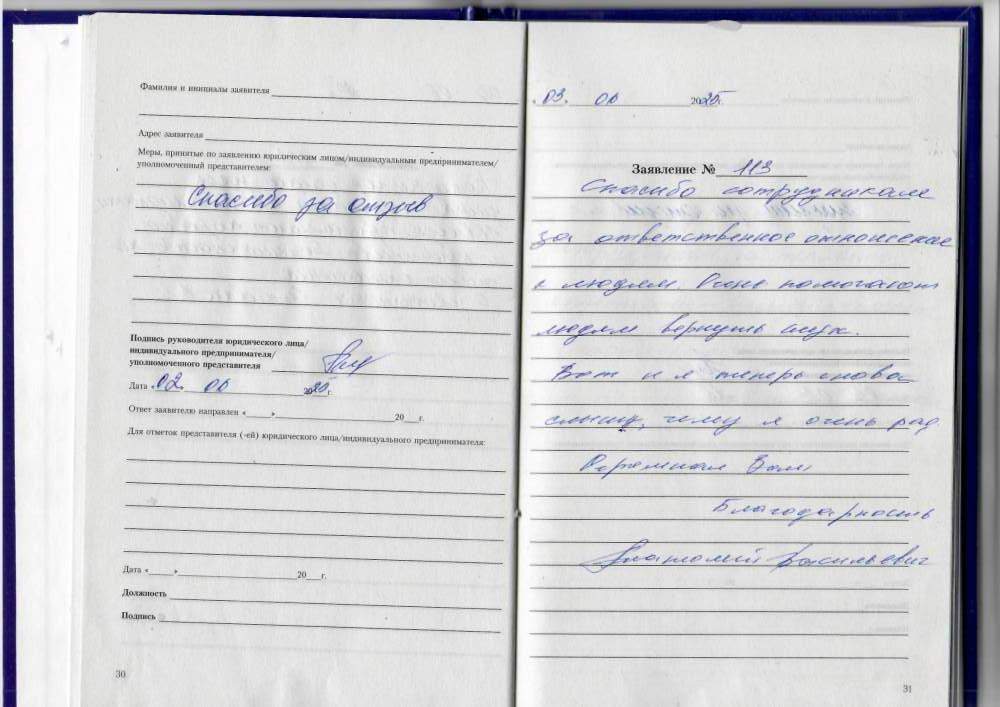 Фамилия и инициалы заявителя
Адрес заявителя
Меры, принятые по заявлению юридическим лицом/индивидуальным предпринимателем/
уполномоченный представителем:
Спасибо за отзыв
Подпись руководителя юридического лица/
индивидуального предпринимателя/
уполномоченного представителя
Дата «02» 06 2025г.
Ответ заявителю направлен «____»____20___г.
Для отметок представителя (-ей) юридического лица/индивидуального предпринимателя:
Дата «____»____20___г.
Должность
Подпись
30
03. 06 2025г.
Заявление № 113
Спасибо сотрудникам
за ответственное отношение
к людям. Они помогают
людям вернуть слух.
Вот и я теперь снова
слышу, чему я очень рад.
Огромная Вам
Благодарность
Анатолий Васильевич
31